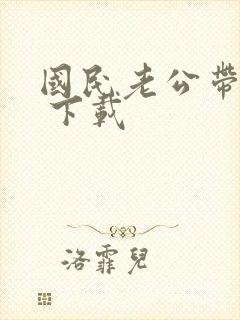 國民老公帶
下載
洛霏兒